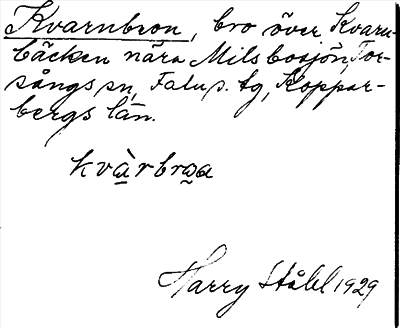 Kvarnbron, bro över Kvarn-
bäcken nära Milsbosjön, Tor-
sångs sn, Falu s. tg, Koppar-
bergs län.
kvàrbroa
Harry Ståhl 1929